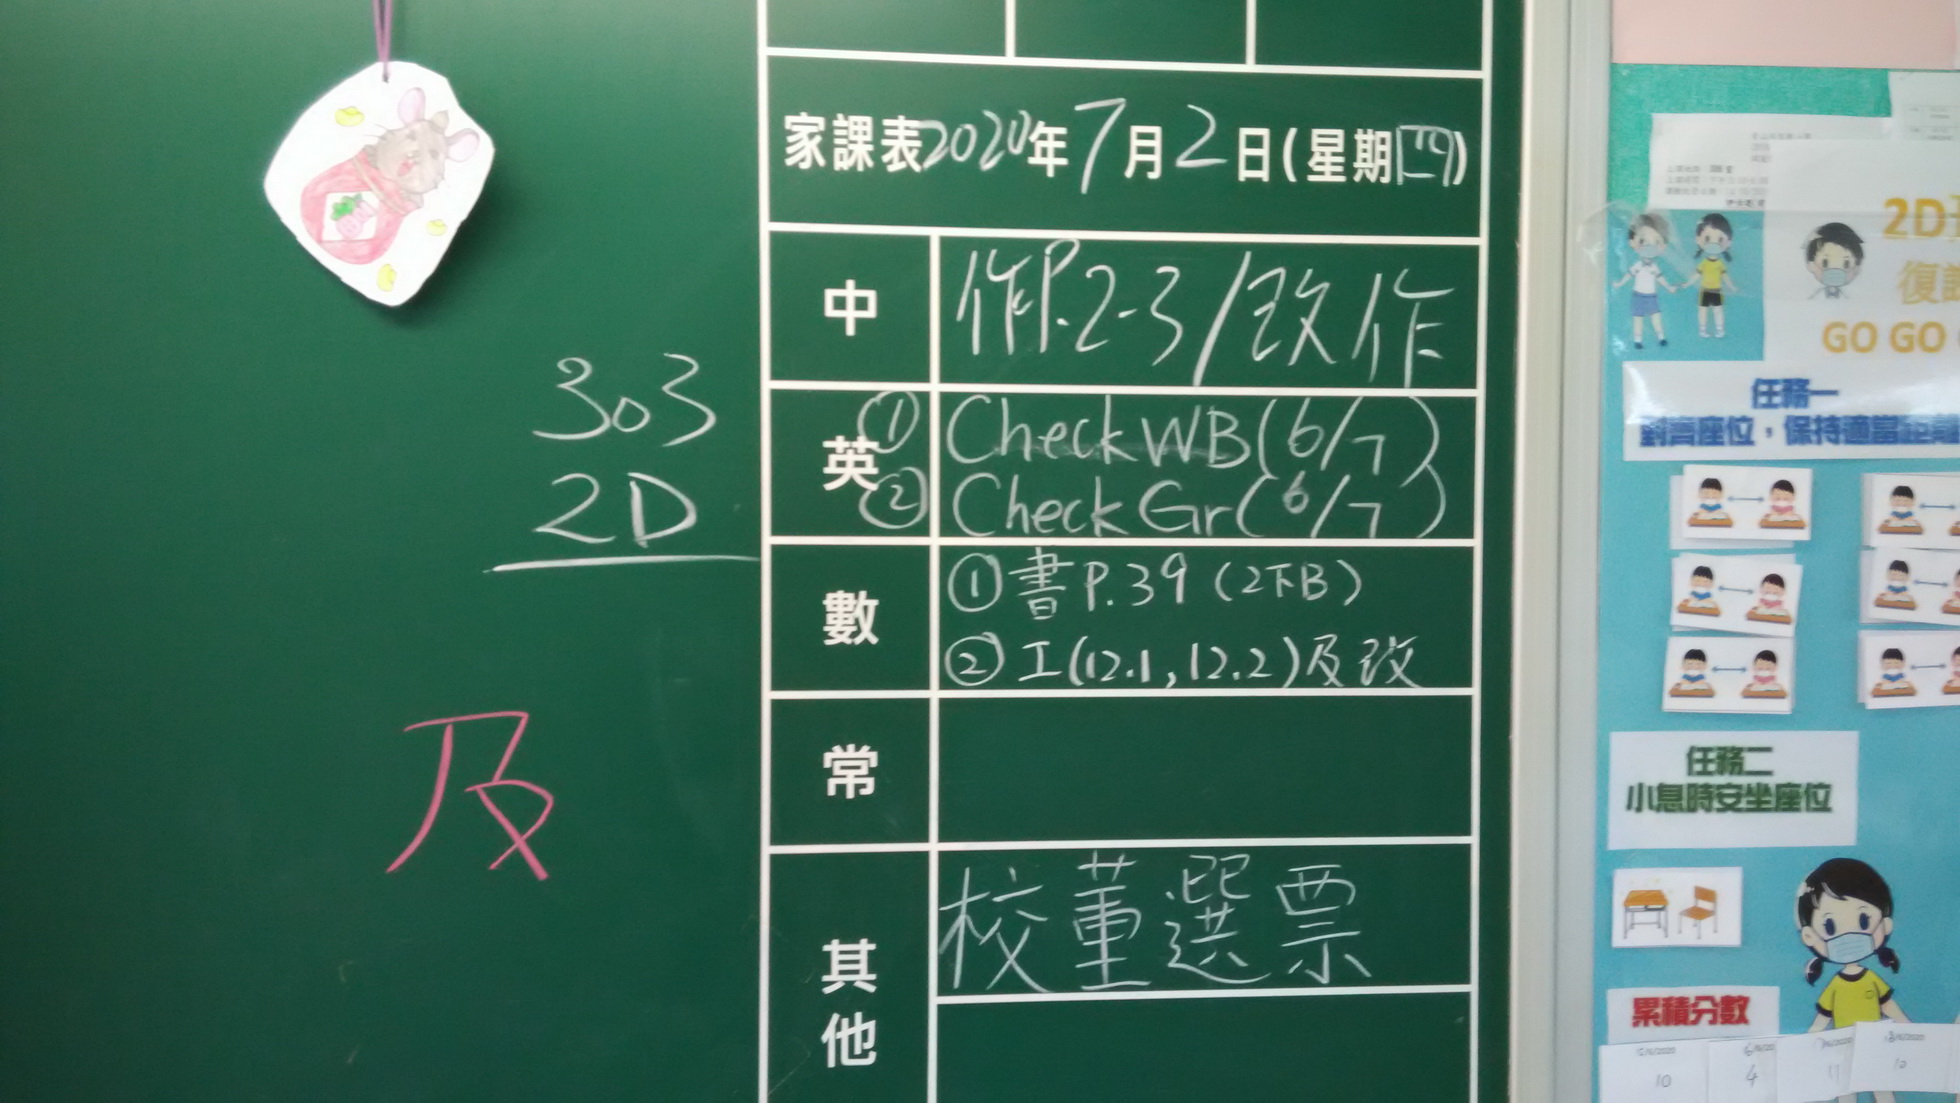 家課表2020年7月2日(星期四)
中 作P.2-3/改作
英 ① Check WB(6/7)
② Check Gr(6/7)
數 ① 書P.39(2下B)
② 工(12.1,12.2)及改
常
其他 校董選票
303
2D
及
2D
GO GO
任務一
對齊座位,保持適當距離
任務二
小息時安坐座位
累積分數
10
4
11
10